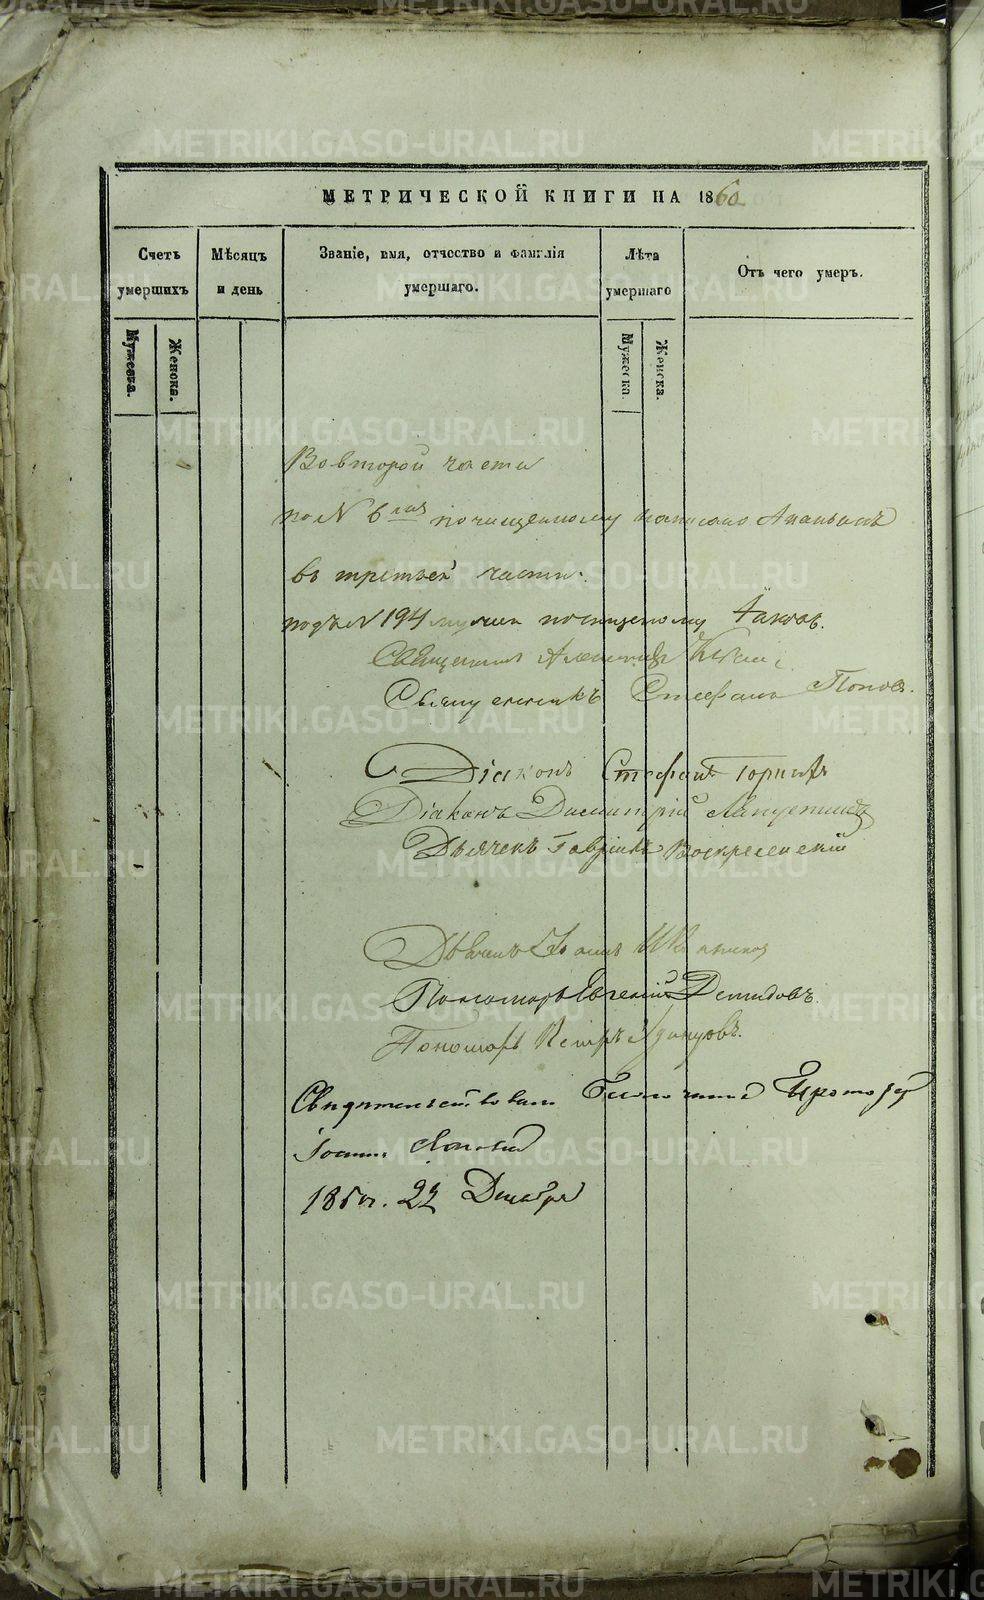 МЕТРИЧЕСКОЙ КНИГИ НА 1860
Счетъ умершихъ
Мѣсяцъ и день
Званіе, имя, отчество и фамилія умершаго.
Лѣта умершаго
Отъ чего умеръ.
Мужеска.
Женска.
Мужеска.
Женска.
Во второй части
по N 6 почищенному написано
въ третьей части
подъ N 194 почищеному Іаковъ.
Священникъ
Священникъ Стефанъ Поповъ.
Діаконъ Стефанъ Горныхъ
Діаконъ Димитрій Лапустинъ
Дьячекъ Гавріилъ Воскресенскій
Дьячекъ
Пономарь Евгеній Демидовъ.
Пономарь Петръ Удинцовъ.
Свидѣтельствовалъ Благочинный Протоіер
Іоаннъ
1860 г. 22 Декабря
METRIKI.GASO-URAL.RU